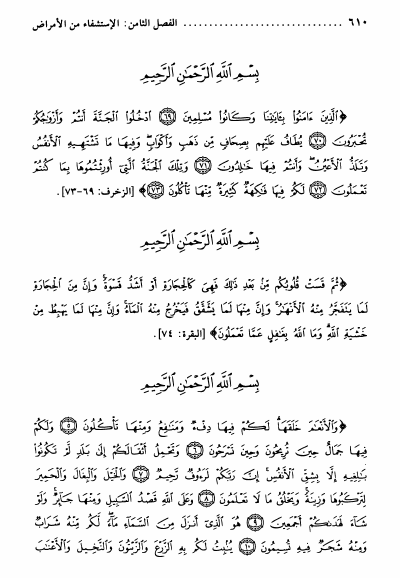 ٦١٠ ............................ الفصل الثامن: الإستشفاء من الأمراض
بِسْمِ اللَّهِ الرَّحْمَٰنِ الرَّحِيمِ
﴿الَّذِينَ ءَامَنُوا بِـَٔايَٰتِنَا وَكَانُوا مُسْلِمِينَ ۝٦٩ ادْخُلُوا الْجَنَّةَ أَنتُمْ وَأَزْوَٰجُكُمْ
تُحْبَرُونَ ۝٧٠ يُطَافُ عَلَيْهِم بِصِحَافٍ مِّن ذَهَبٍ وَأَكْوَابٍ ۖ وَفِيهَا مَا تَشْتَهِيهِ الْأَنفُسُ
وَتَلَذُّ الْأَعْيُنُ ۖ وَأَنتُمْ فِيهَا خَٰلِدُونَ ۝٧١ وَتِلْكَ الْجَنَّةُ الَّتِي أُورِثْتُمُوهَا بِمَا كُنتُمْ
تَعْمَلُونَ ۝٧٢ لَكُمْ فِيهَا فَٰكِهَةٌ كَثِيرَةٌ مِّنْهَا تَأْكُلُونَ ۝٧٣﴾ [الزخرف: ٦٩-٧٣].
بِسْمِ اللَّهِ الرَّحْمَٰنِ الرَّحِيمِ
﴿ثُمَّ قَسَتْ قُلُوبُكُم مِّنۢ بَعْدِ ذَٰلِكَ فَهِيَ كَالْحِجَارَةِ أَوْ أَشَدُّ قَسْوَةً ۚ وَإِنَّ مِنَ الْحِجَارَةِ
لَمَا يَتَفَجَّرُ مِنْهُ الْأَنْهَٰرُ ۚ وَإِنَّ مِنْهَا لَمَا يَشَّقَّقُ فَيَخْرُجُ مِنْهُ الْمَاءُ ۚ وَإِنَّ مِنْهَا لَمَا يَهْبِطُ مِنْ
خَشْيَةِ اللَّهِ ۗ وَمَا اللَّهُ بِغَٰفِلٍ عَمَّا تَعْمَلُونَ﴾ [البقرة: ٧٤].
بِسْمِ اللَّهِ الرَّحْمَٰنِ الرَّحِيمِ
﴿وَالْأَنْعَٰمَ خَلَقَهَا ۗ لَكُمْ فِيهَا دِفْءٌ وَمَنَٰفِعُ وَمِنْهَا تَأْكُلُونَ ۝٥ وَلَكُمْ
فِيهَا جَمَالٌ حِينَ تُرِيحُونَ وَحِينَ تَسْرَحُونَ ۝٦ وَتَحْمِلُ أَثْقَالَكُمْ إِلَىٰ بَلَدٍ لَّمْ تَكُونُوا
بَٰلِغِيهِ إِلَّا بِشِقِّ الْأَنفُسِ ۚ إِنَّ رَبَّكُمْ لَرَءُوفٌ رَّحِيمٌ ۝٧ وَالْخَيْلَ وَالْبِغَالَ وَالْحَمِيرَ
لِتَرْكَبُوهَا وَزِينَةً ۚ وَيَخْلُقُ مَا لَا تَعْلَمُونَ ۝٨ وَعَلَى اللَّهِ قَصْدُ السَّبِيلِ وَمِنْهَا جَائِرٌ ۚ وَلَوْ
شَاءَ لَهَدَىٰكُمْ أَجْمَعِينَ ۝٩ هُوَ الَّذِي أَنزَلَ مِنَ السَّمَاءِ مَاءً ۖ لَّكُم مِّنْهُ شَرَابٌ
وَمِنْهُ شَجَرٌ فِيهِ تُسِيمُونَ ۝١٠ يُنۢبِتُ لَكُم بِهِ الزَّرْعَ وَالزَّيْتُونَ وَالنَّخِيلَ وَالْأَعْنَٰبَ